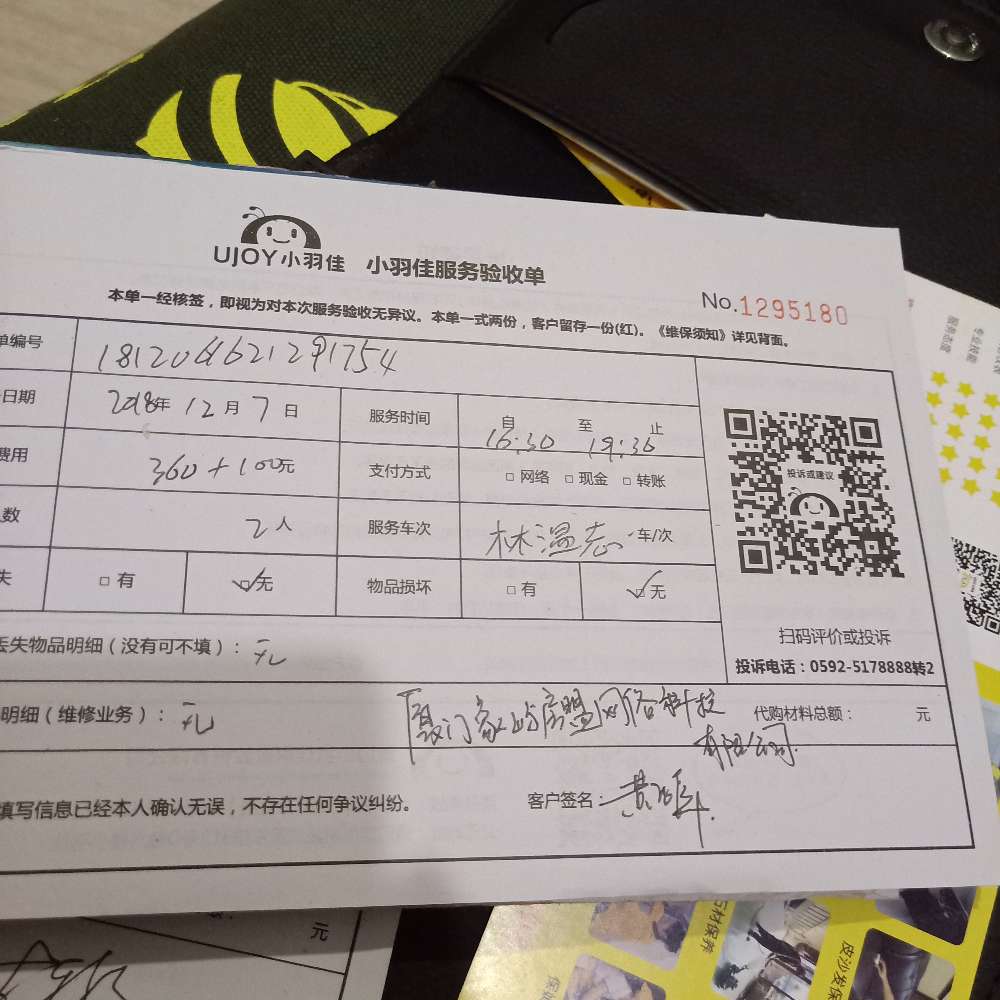 UJOY小羽佳 小羽佳服务验收单
No.1295180
本单一经核签，即视为对本次服务验收无异议。本单一式两份，客户留存一份(红)。《维保须知》详见背面。
单编号
日期 2018年 12月 7日 服务时间 自 16:30 至 19:30 止
费用 360+100元 支付方式 □ 网络 □ 现金 □ 转账
人数 2人 服务车次 林温志 车/次
失 □ 有 ☑无 物品损坏 □ 有 ☑无
投诉或建议
扫码评价或投诉
投诉电话：0592-5178888转2
丢失物品明细（没有可不填）：无
明细（维修业务）：无
代购材料总额： 元
有限公司
填写信息已经本人确认无误，不存在任何争议纠纷。 客户签名：
元
服务态度
专业技能
石材保养
皮沙发保